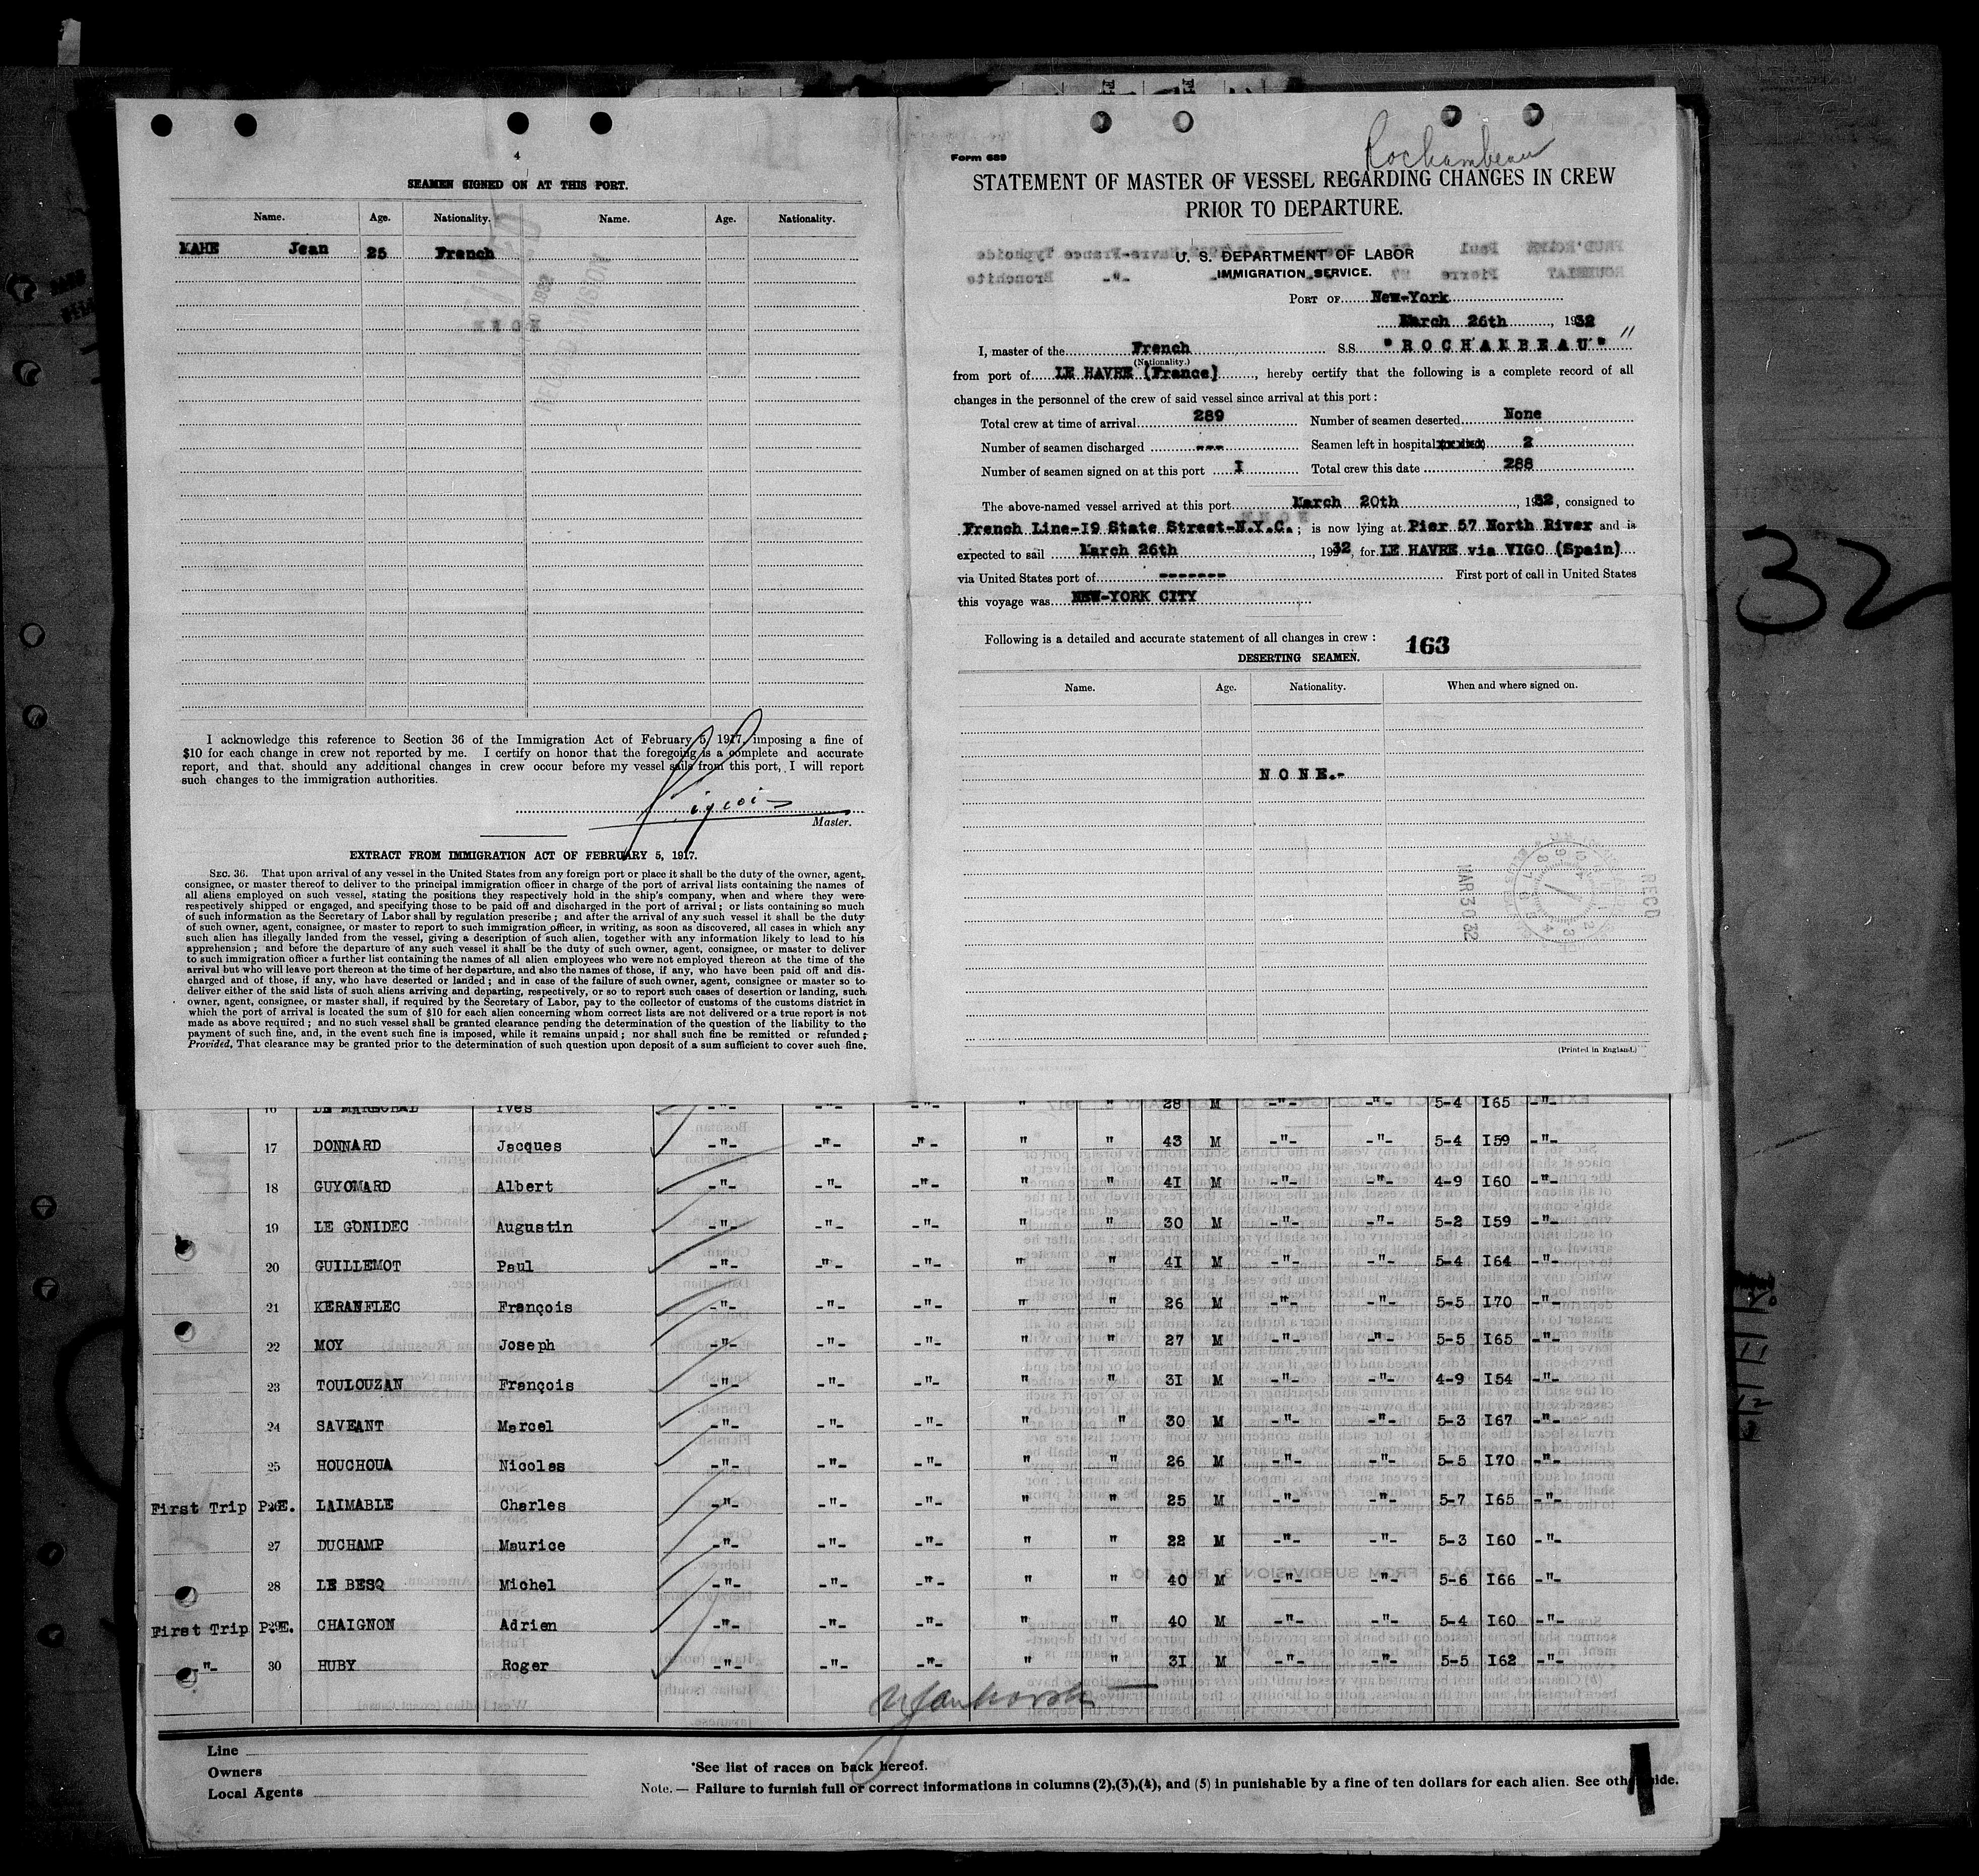 4
SEAMEN SIGNED ON AT THIS PORT.
Name. Age. Nationality. Name. Age. Nationality.
MAHE Jean 25 French
I acknowledge this reference to Section 36 of the Immigration Act of February 5, 1917, imposing a fine of
$10 for each change in crew not reported by me. I certify on honor that the foregoing is a complete and accurate
report, and that should any additional changes in crew occur before my vessel sails from this port, I will report
such changes to the immigration authorities.
Master.
EXTRACT FROM IMMIGRATION ACT OF FEBRUARY 5, 1917.
SEC. 36. That upon arrival of any vessel in the United States from any foreign port or place it shall be the duty of the owner, agent,
consignee, or master thereof to deliver to the principal immigration officer in charge of the port of arrival lists containing the names of
all aliens employed on such vessel, stating the positions they respectively hold in the ship's company, when and where they were
respectively shipped or engaged, and specifying those to be paid off and discharged in the port of arrival; or lists containing so much
of such information as the Secretary of Labor shall by regulation prescribe; and after the arrival of any such vessel it shall be the duty
of such owner, agent, consignee, or master to report to such immigration officer, in writing, as soon as discovered, all cases in which any
such alien has illegally landed from the vessel, giving a description of such alien, together with any information likely to lead to his
apprehension; and before the departure of any such vessel it shall be the duty of such owner, agent, consignee, or master to deliver
to such immigration officer a further list containing the names of all alien employees who were not employed thereon at the time of the
arrival but who will leave port thereon at the time of her departure, and also the names of those, if any, who have been paid off and dis-
charged and of those, if any, who have deserted or landed; and in case of the failure of such owner, agent, consignee or master so to
deliver either of the said lists of such aliens arriving and departing, respectively, or so to report such cases of desertion or landing, such
owner, agent, consignee, or master shall, if required by the Secretary of Labor, pay to the collector of customs of the customs district in
which the port of arrival is located the sum of $10 for each alien concerning whom correct lists are not delivered or a true report is not
made as above required; and no such vessel shall be granted clearance pending the determination of the question of the liability to the
payment of such fine, and, in the event such fine is imposed, while it remains unpaid; nor shall such fine be remitted or refunded;
Provided, That clearance may be granted prior to the determination of such question upon deposit of a sum sufficient to cover such fine.
Rochambeau
Form 689
STATEMENT OF MASTER OF VESSEL REGARDING CHANGES IN CREW
PRIOR TO DEPARTURE.
U. S. DEPARTMENT OF LABOR
IMMIGRATION SERVICE.
PORT OF New-York
March 26th, 1932
I, master of the French S.S. "ROCHAMBEAU" "
(Nationality.)
from port of LE HAVRE (France), hereby certify that the following is a complete record of all
changes in the personnel of the crew of said vessel since arrival at this port:
Total crew at time of arrival 289 Number of seamen deserted None
Number of seamen discharged --- Seamen left in hospital 2
Number of seamen signed on at this port I Total crew this date 288
The above-named vessel arrived at this port March 20th, 1932, consigned to
French Line-I9 State Street-N.Y.C.; is now lying at Pier 57 North River and is
expected to sail March 26th, 1932, for LE HAVRE via VIGO (Spain)
via United States port of ------- First port of call in United States
this voyage was NEW-YORK CITY
Following is a detailed and accurate statement of all changes in crew: 163
DESERTING SEAMEN.
Name. Age. Nationality. When and where signed on.
N O N E.-
RECD
MAR 30 32
(Printed in England.)
32
16 LE MARECHAL Yves -"- -"- -"- " " 28 M -"- -"- 5-4 I65 -"-
17 DONNARD Jacques -"- -"- -"- " " 43 M -"- -"- 5-4 I59 -"-
18 GUYOMARD Albert -"- -"- -"- " " 4I M -"- -"- 4-9 I60 -"-
19 LE GONIDEC Augustin -"- -"- -"- " " 30 M -"- -"- 5-2 I59 -"-
20 GUILLEMOT Paul -"- -"- -"- " " 4I M -"- -"- 5-4 I64 -"-
21 KERANFLEC François -"- -"- -"- " " 26 M -"- -"- 5-5 I70 -"-
22 MOY Joseph -"- -"- -"- " " 27 M -"- -"- 5-5 I65 -"-
23 TOULOUZAN François -"- -"- -"- " " 3I M -"- -"- 4-9 I54 -"-
24 SAVEANT Marcel -"- -"- -"- " " 30 M -"- -"- 5-3 I67 -"-
25 HOUCHOUA Nicolas -"- -"- -"- " " 26 M -"- -"- 5-5 I70 -"-
First Trip P.E. 26 LAIMABLE Charles -"- -"- -"- " " 25 M -"- -"- 5-7 I65 -"-
27 DUCHAMP Maurice -"- -"- -"- " " 22 M -"- -"- 5-3 I60 -"-
28 LE BESQ Michel -"- -"- -"- " " 40 M -"- -"- 5-6 I66 -"-
First Trip P.E. 29 CHAIGNON Adrien -"- -"- -"- " " 40 M -"- -"- 5-4 I60 -"-
-"- 30 HUBY Roger -"- -"- -"- " " 3I M -"- -"- 5-5 I62 -"-
Line
Owners
Local Agents
*See list of races on back hereof.
Note. — Failure to furnish full or correct informations in columns (2),(3),(4), and (5) in punishable by a fine of ten dollars for each alien. See other side.